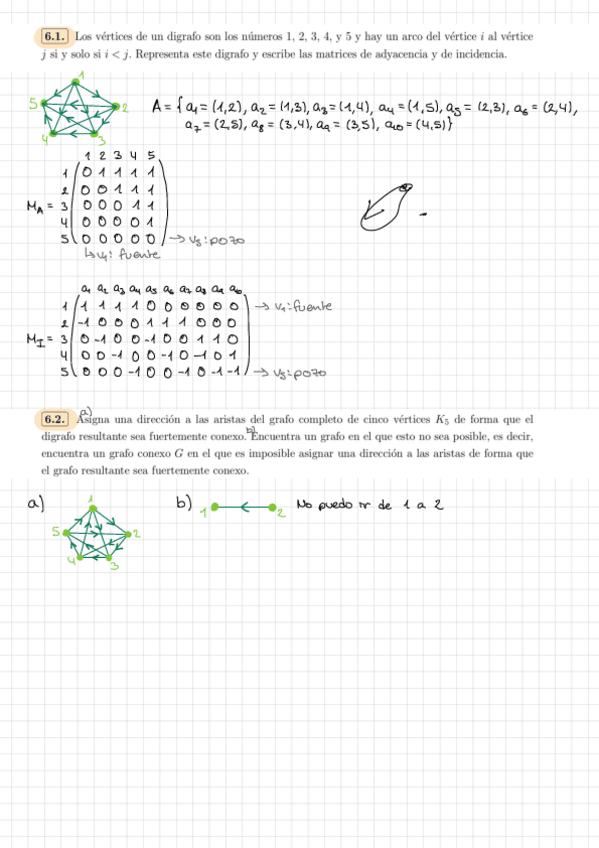 6.1. Los vértices de un digrafo son los números 1, 2, 3, 4, y 5 y hay un arco del vértice i al vértice
j si y solo si i < j. Representa este digrafo y escribe las matrices de adyacencia y de incidencia.
1
5 2
4 3
A = { a₁ = (1,2), a₂ = (1,3), a₃ = (1,4), a₄ = (1,5), a₅ = (2,3), a₆ = (2,4),
a₇ = (2,5), a₈ = (3,4), a₉ = (3,5), a₁₀ = (4,5)}
1 2 3 4 5
1 0 1 1 1 1
2 0 0 1 1 1
M_A = 3 0 0 0 1 1
4 0 0 0 0 1
5 0 0 0 0 0 → v₅: pozo
↳ v₁: fuente
a₁ a₂ a₃ a₄ a₅ a₆ a₇ a₈ a₉ a₁₀
1 1 1 1 1 0 0 0 0 0 0 → v₁: fuente
2 -1 0 0 0 1 1 1 0 0 0
M_I = 3 0 -1 0 0 -1 0 0 1 1 0
4 0 0 -1 0 0 -1 0 -1 0 1
5 0 0 0 -1 0 0 -1 0 -1 -1 → v₅: pozo
a)
6.2. Asigna una dirección a las aristas del grafo completo de cinco vértices K₅ de forma que el
b)
digrafo resultante sea fuertemente conexo. Encuentra un grafo en el que esto no sea posible, es decir,
encuentra un grafo conexo G en el que es imposible asignar una dirección a las aristas de forma que
el grafo resultante sea fuertemente conexo.
a) 1
5 2
4 3
b) 1 2 No puedo ir de 1 a 2